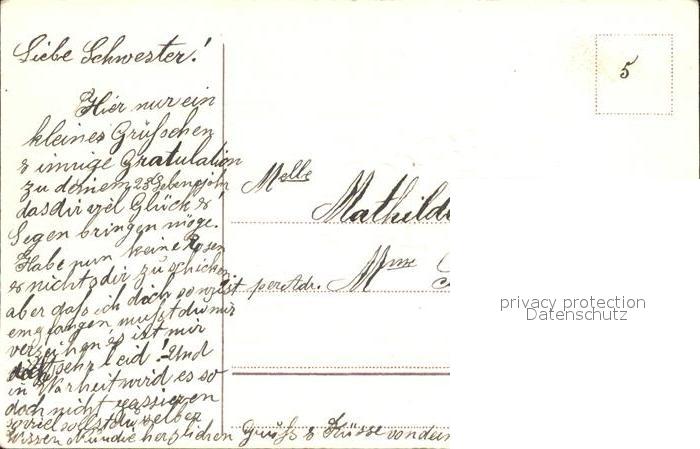 Liebe Schwester!
5
Hier nur ein
kleines Grüßchen
& innige Gratulation
zu deinem 28 Lebensjahr
das dir viel Glück &
Segen bringen möge.
Habe nun keine Rosen
& nichts dir zu schicken
aber daß ich doch so
emgfangen mußt du mir
verzeihen es ist mir
doch sehr leid! Und
in Warheit wird es so
doch nicht passieren
soviel sollst du selber
wissen Nun die herzlichen Grüß & Küsse von dein
Melle
Mathilde
per Adr. Mme
privacy protection
Datenschutz